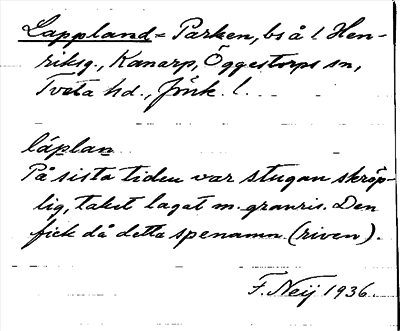 Lappland = Parken, bs å l Hen-
riksg., Kanarp, Öggestorps sn,
Tveta hd., Jönk. l.
láplan
På sista tiden var stugan skröp-
lig, taket lagat m. granris. Den
fick då detta spenamn. (riven).
F. Neij 1936.